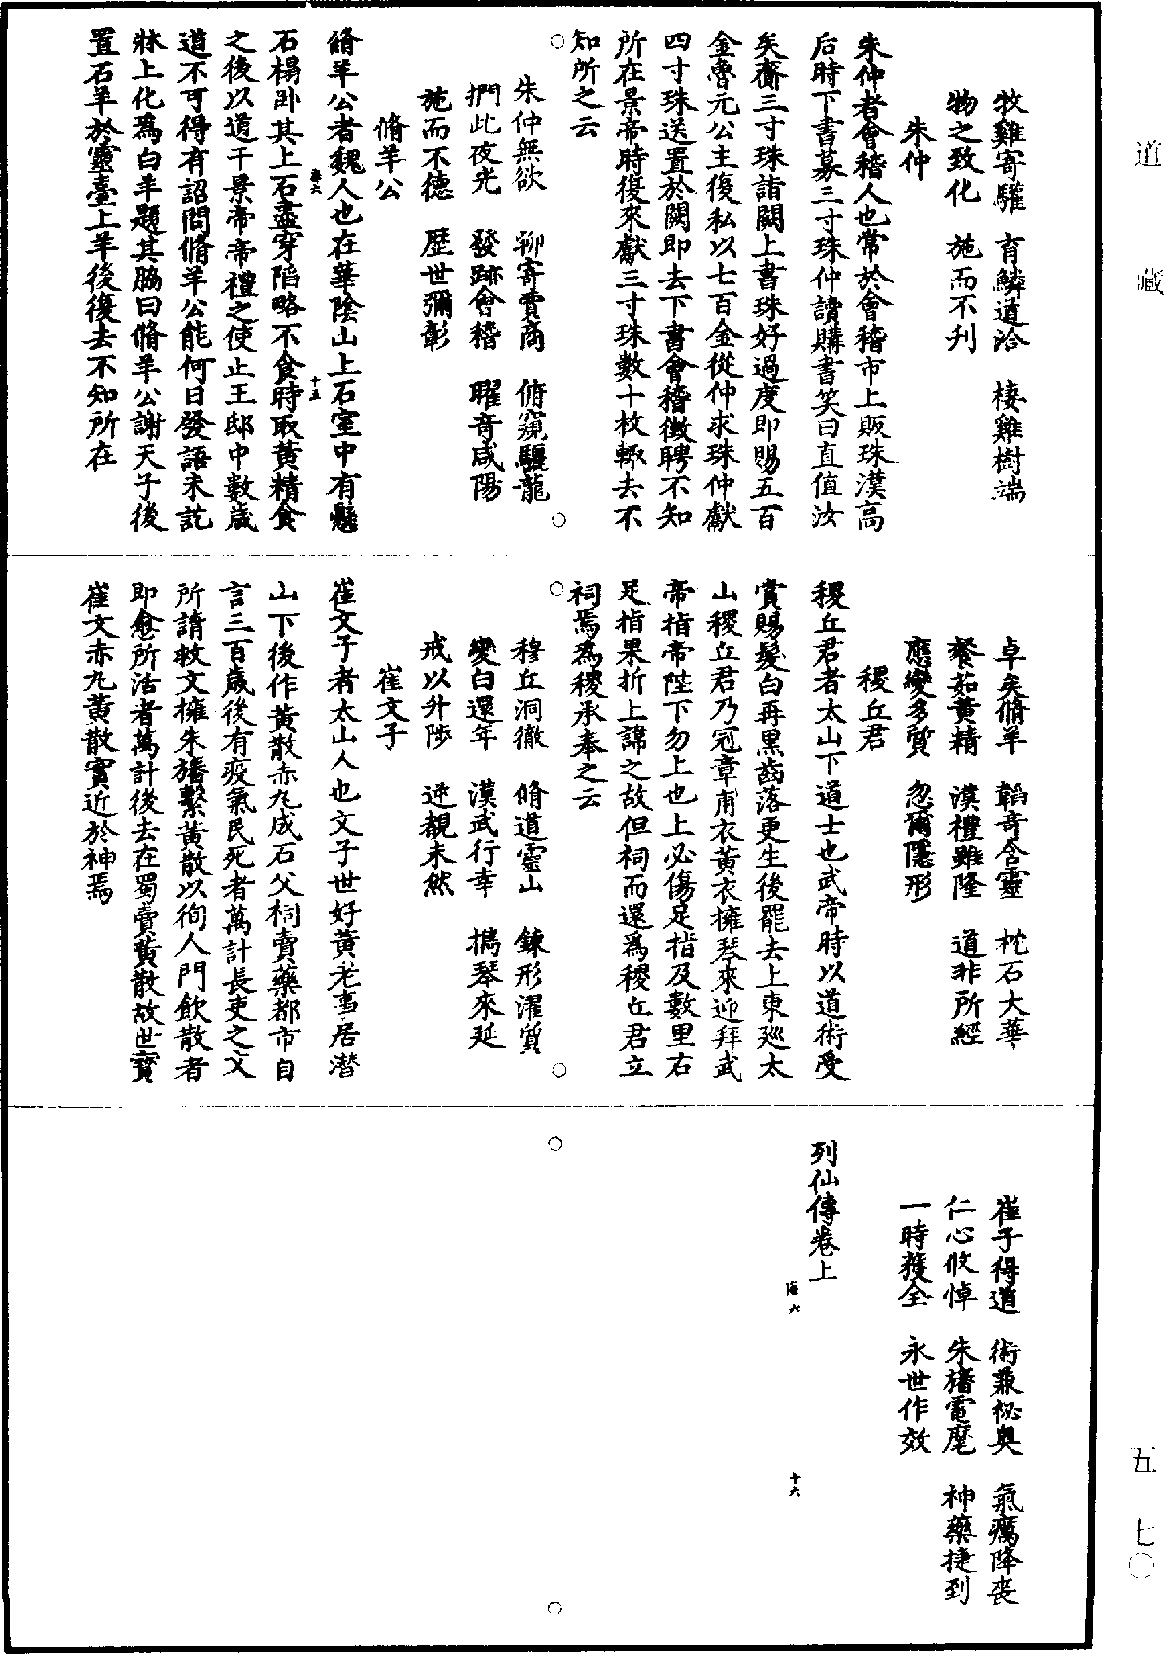 道藏
牧雞寄驩　育鱗道洽　棲雞樹端
物之致化　施而不刋
朱仲
朱仲者會稽人也常於會稽市上販珠漢高
后時下書募三寸珠仲讀購書笑曰直值汝
矣齎三寸珠詣闕上書珠好過度即賜五百
金魯元公主復私以七百金從仲求珠仲獻
四寸珠送置於闕即去下書會稽徵聘不知
所在景帝時復來獻三寸珠數十枚輙去不
知所之云
朱仲無欲　聊寄賈商　俯窺驪龍
捫此夜光　發跡會稽　曜奇咸陽
施而不德　歷世彌彰
脩羊公
脩羊公者魏人也在華陰山上石室中有懸
海六　十五
石榻卧其上石盡穿陷略不食時取黃精食
之後以道干景帝帝禮之使止王邸中數歲
道不可得有詔問脩羊公能何日發語未訖
牀上化為白羊題其脇曰脩羊公謝天子後
置石羊於靈臺上羊後復去不知所在
卓矣脩羊　韜奇含靈　枕石大華
餐茹黃精　漢禮雖隆　道非所經
應變多質　忽爾隱形
稷丘君
稷丘君者太山下道士也武帝時以道術受
賞賜髮白再黑齒落更生後罷去上東巡太
山稷丘君乃冠章甫衣黃衣擁琴來迎拜武
帝指帝陛下勿上也上必傷足指及數里右
足指果折上諱之故但祠而還爲稷丘君立
祠焉為稷承奉之云
穆丘洞徹　脩道靈山　鍊形濯質
變白還年　漢武行幸　攜琴來延
戒以升陟　逆覩未然
崔文子
崔文子者太山人也文子世好黃老事居潜
山下後作黃散赤丸成石父祠賣藥都市自
言三百歲後有疫氣民死者萬計長吏之文
所請救文擁朱旛繫黃散以徇人門飲散者
即愈所活者萬計後去在蜀賣黃散故世寳
崔文赤丸黃散實近於神焉
崔子得道　術兼袐奥　氣癘降喪
仁心攸悼　朱旛電麾　神藥捷到
一時獲全　永世作效
列仙傳卷上
海六　十六
五　七〇